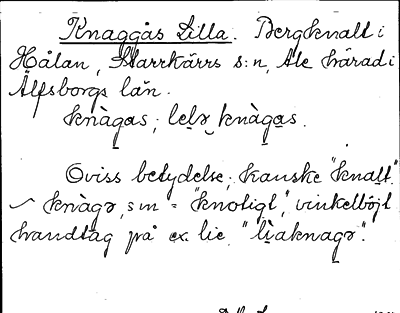 Knaggås Lilla. Bergknalt i
Hålan, Starrkärrs s:n, Ale härad i
Älfsborgs län.
knàgas; lelə knàgas.
Oviss betydelse; kanske "knalt".
knàgə, sm = "knotigt", vinkelböjt
handtag på ex. lie, "lìaknagə".